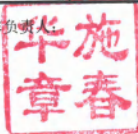 负责人:
施春
华章